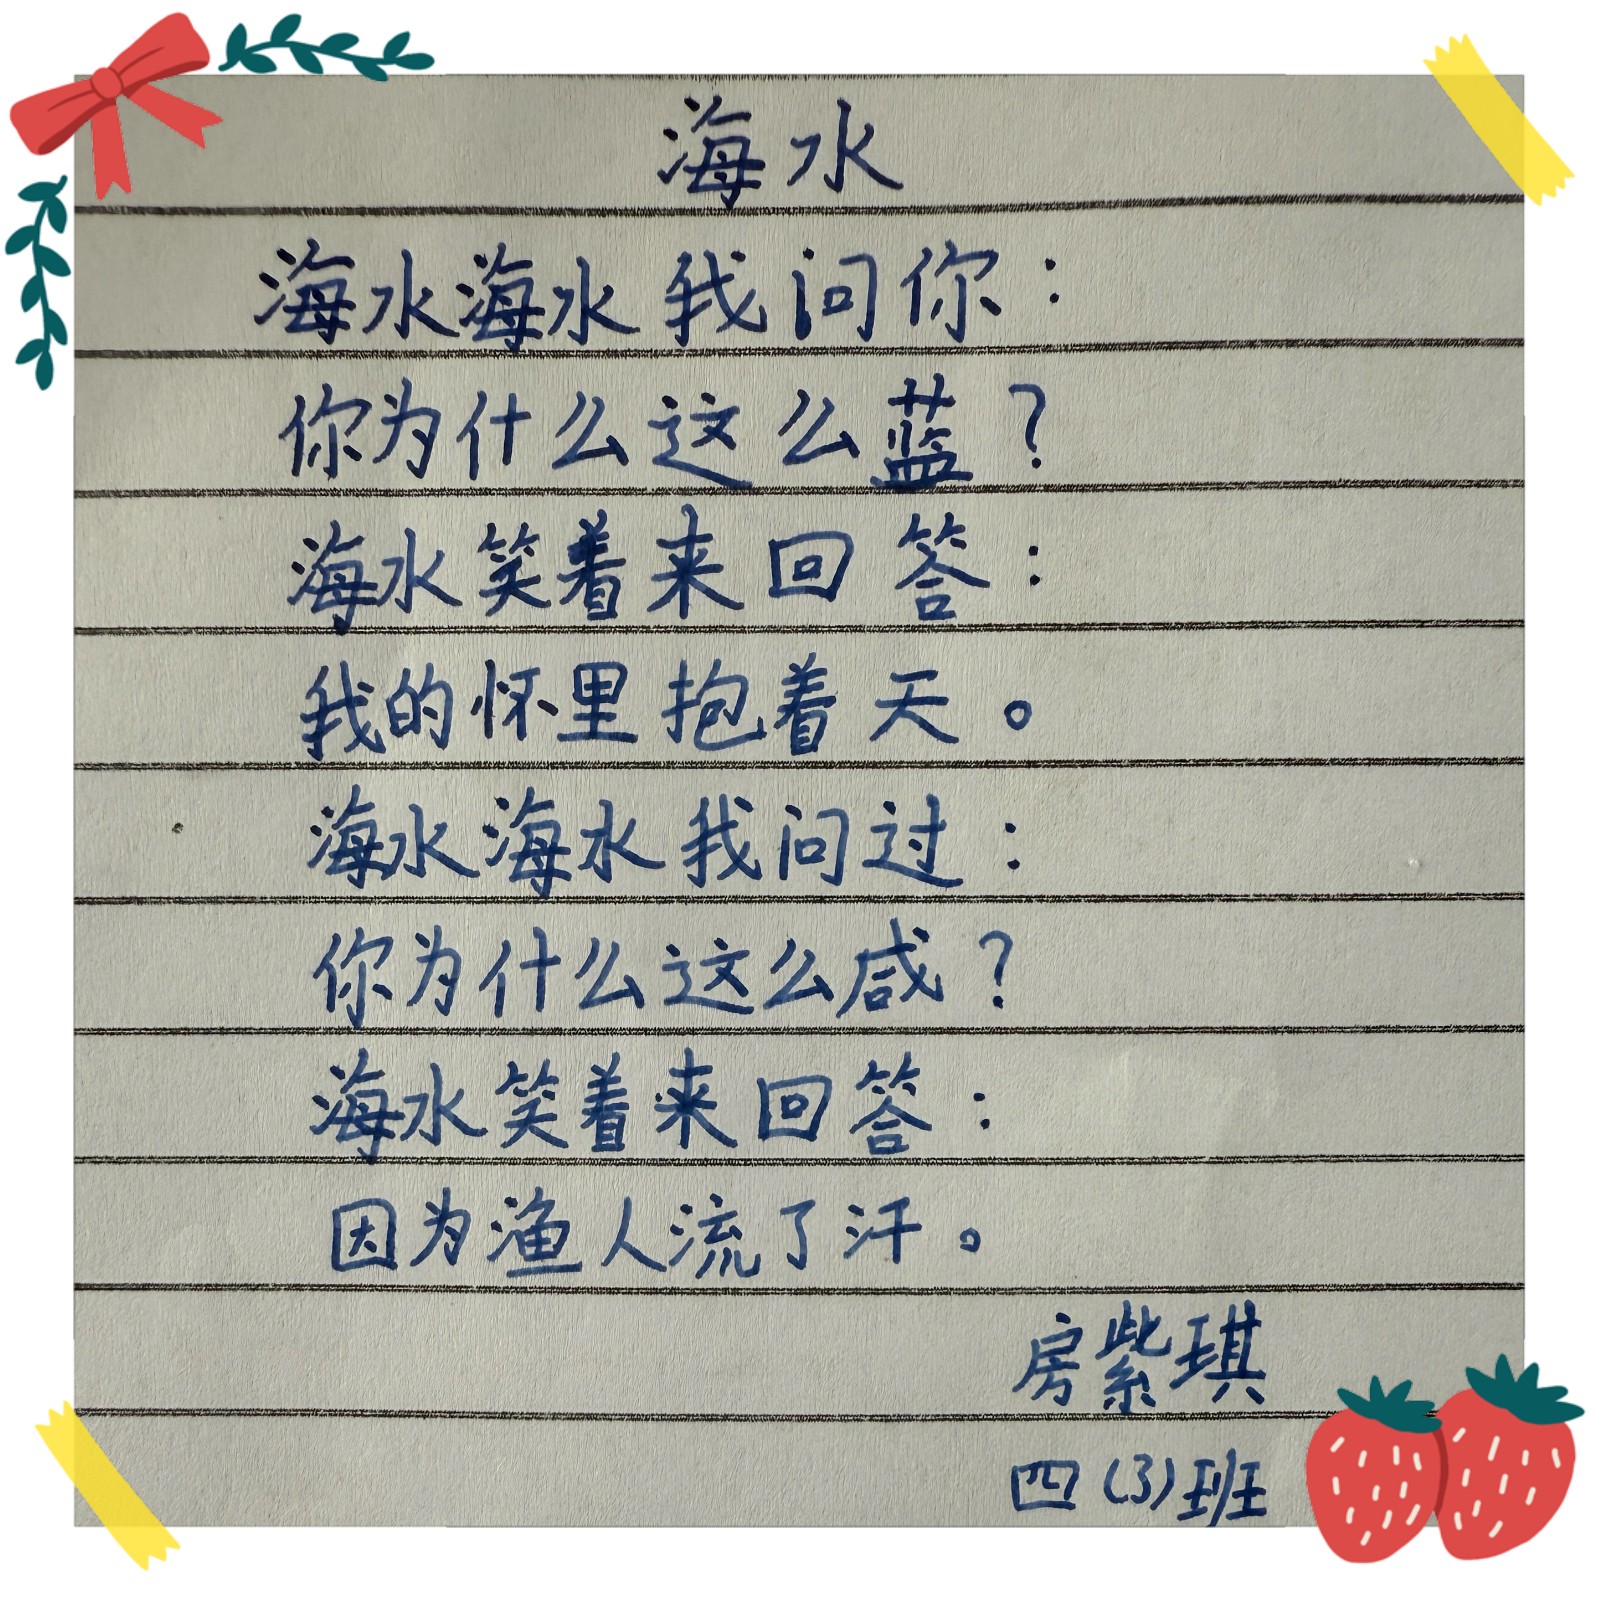 海水
海水海水我问你：
你为什么这么蓝？
海水笑着来回答：
我的怀里抱着天。
海水海水我问过：
你为什么这么咸？
海水笑着来回答：
因为渔人流了汗。
房紫琪
四（3）班